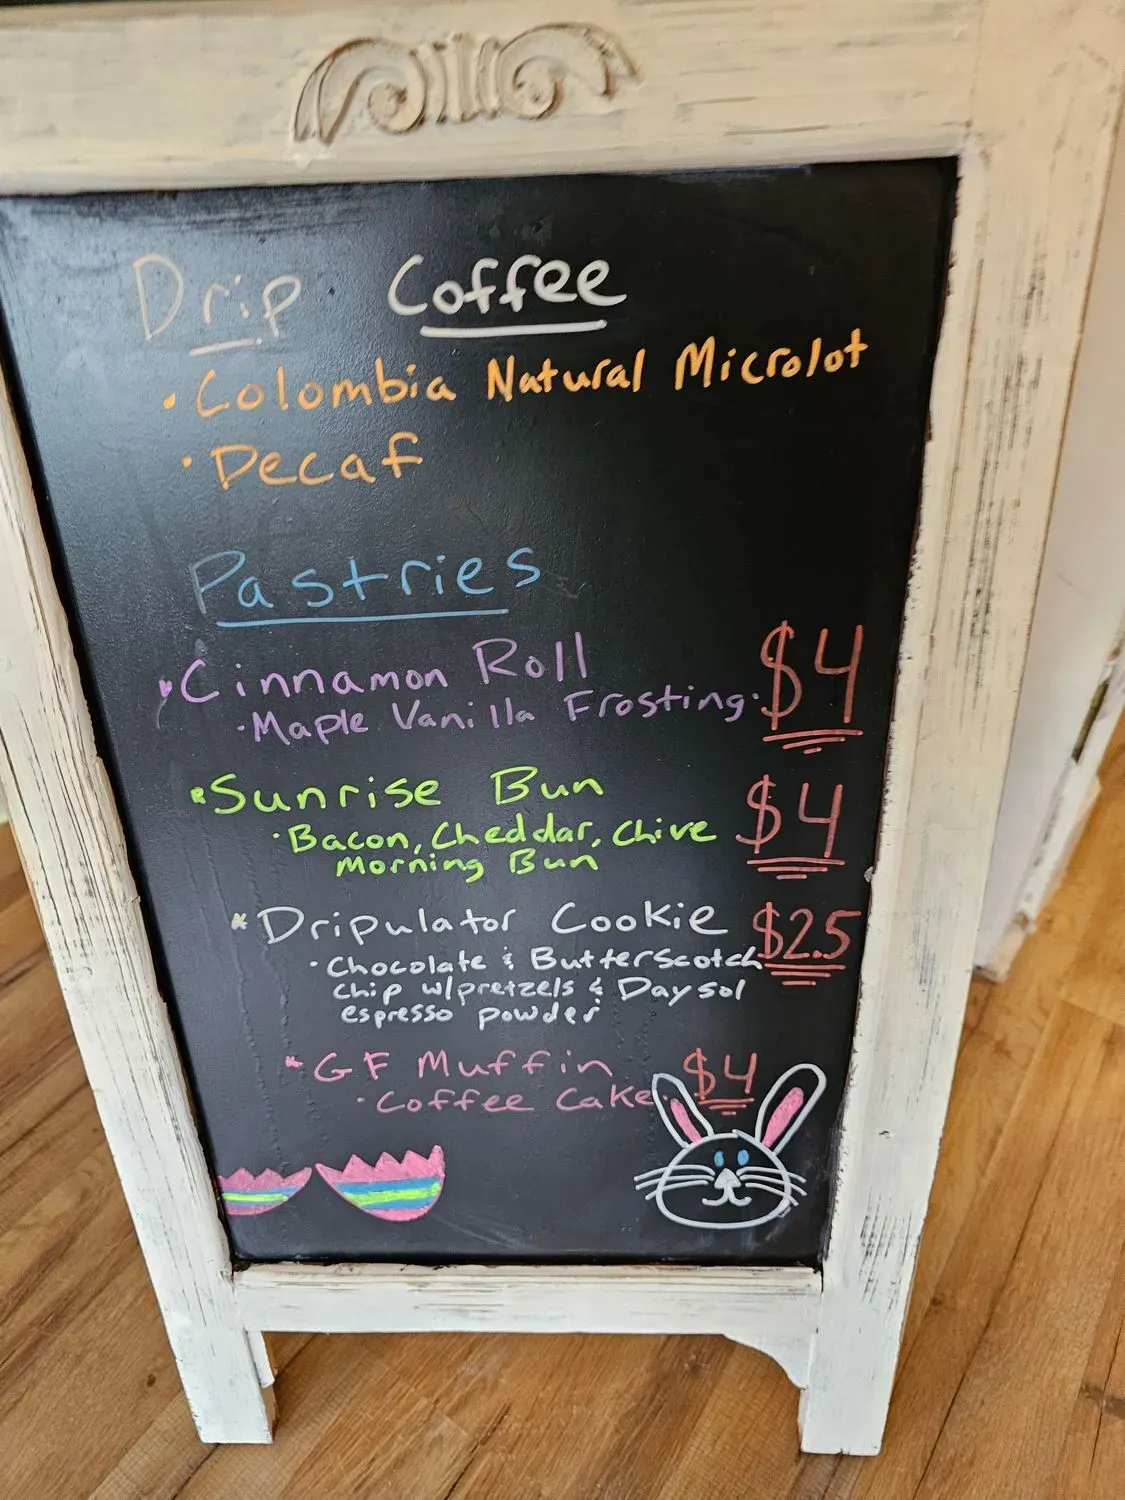 Drip Coffee
• Colombia Natural Microlot
• Decaf
Pastries
• Cinnamon Roll $4
• Maple Vanilla Frosting
• Sunrise Bun $4
• Bacon, Cheddar, Chive
Morning Bun
* Dripulator Cookie $2.5
• Chocolate & Butterscotch
chip w/pretzels & Daysol
espresso powder
* GF Muffin $4
• Coffee Cake